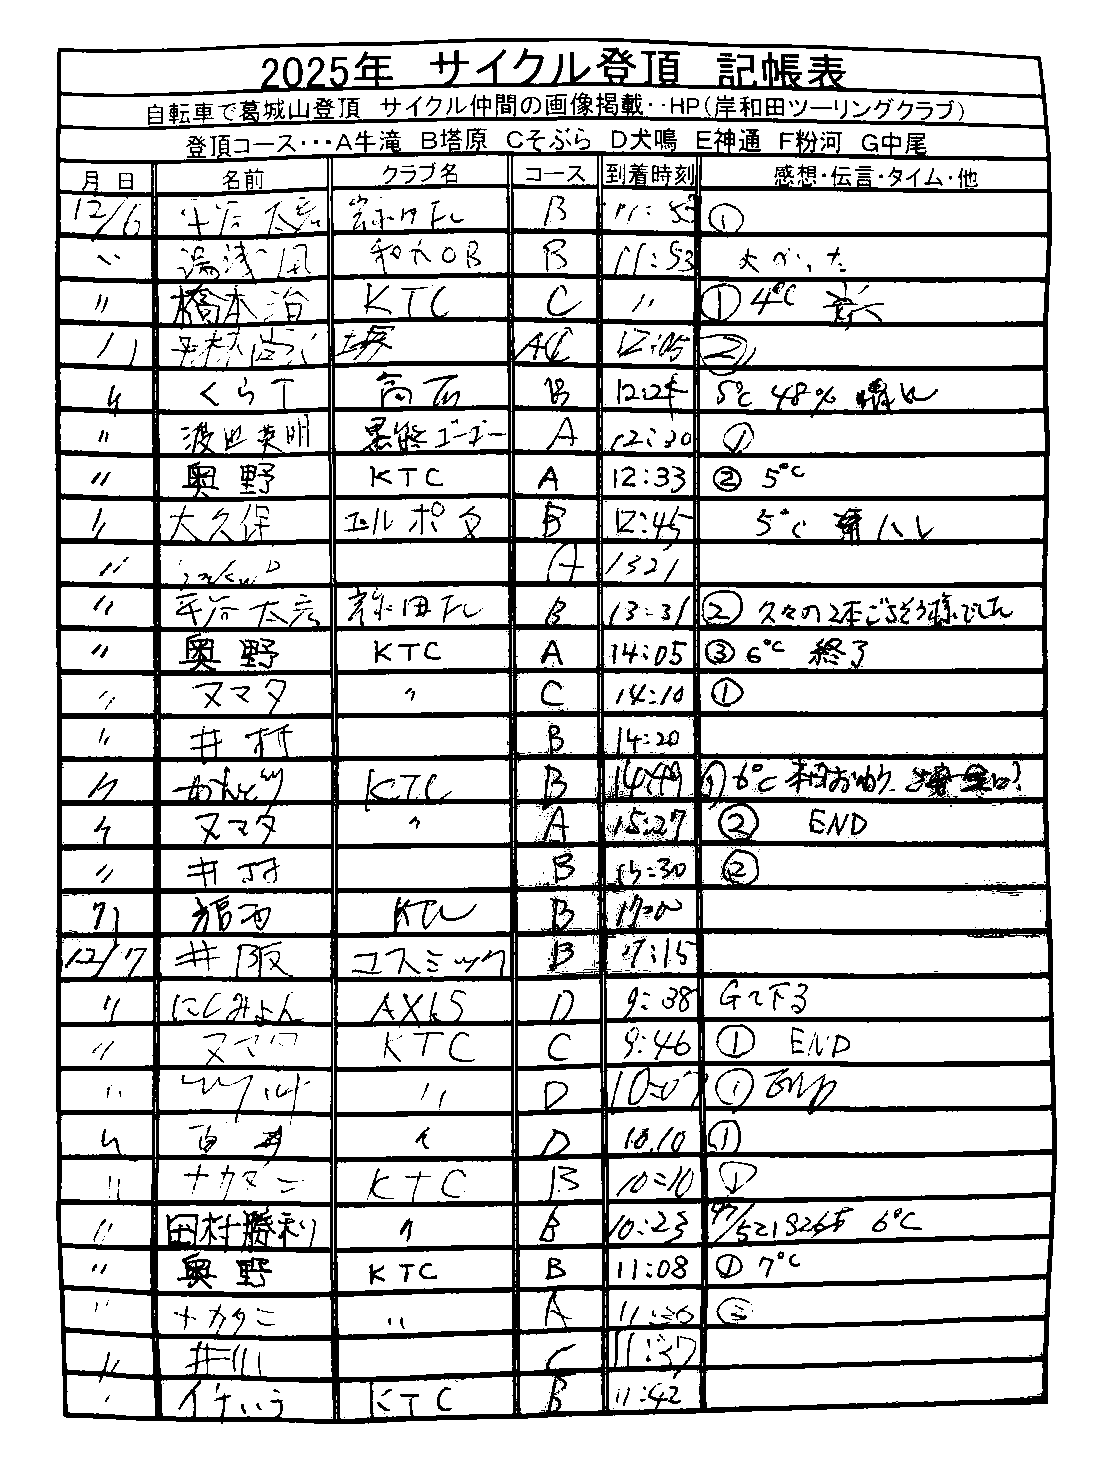 2025年 サイクル登頂 記帳表
自転車で葛城山登頂 サイクル仲間の画像掲載‥HP(岸和田ツーリングクラブ)
登頂コース･･･A牛滝 B塔原 Cそぶら D犬鳴 E神通 F粉河 G中尾
月 日 名前 クラブ名 コース 到着時刻 感想・伝言・タイム・他
12/6 太 B 11:53 ①
〃 湯浅 和大OB B 11:53 よかった
〃 橋本 治 KTC C 〃 ① 4℃
〃 堺 AC 12:05 ②
〃 くらT 高石 B 5℃ 48% 晴れ
〃 渡辺英明 黒熊ゴーゴー A 12:30 ①
〃 奥野 KTC A 12:33 ② 5℃
〃 大久保 エルポタ B 12:45 5℃ ハレ
〃 A 1321
〃 平谷 太 B 13:31 ② 久々の2本ごちそう様でした
〃 奥野 KTC A 14:05 ③ 6℃ 終了
〃 ヌマタ 〃 C 14:10 ①
〃 井村 B 14:20
〃 KTC B 14:49 ① 6℃
〃 ヌマタ 〃 A 15:27 ② END
〃 井村 B 15:30 ②
〃 福西 KTC B 17:00
12/7 井阪 コスミック B 7:15
〃 にしみょん AXIS D 9:38 Gで下る
〃 ヌマタ KTC C 9:46 ① END
〃 〃 D 10:07 ①
〃 百井 〃 D 10.10 ①
〃 ナカタニ KTC B 10:10 ①
〃 田村勝利 〃 B 10:23 6℃
〃 奥野 KTC B 11:08 ① 7℃
〃 ナカタニ 〃 A ②
〃 井川 C 11:37
〃 KTC B 11:42